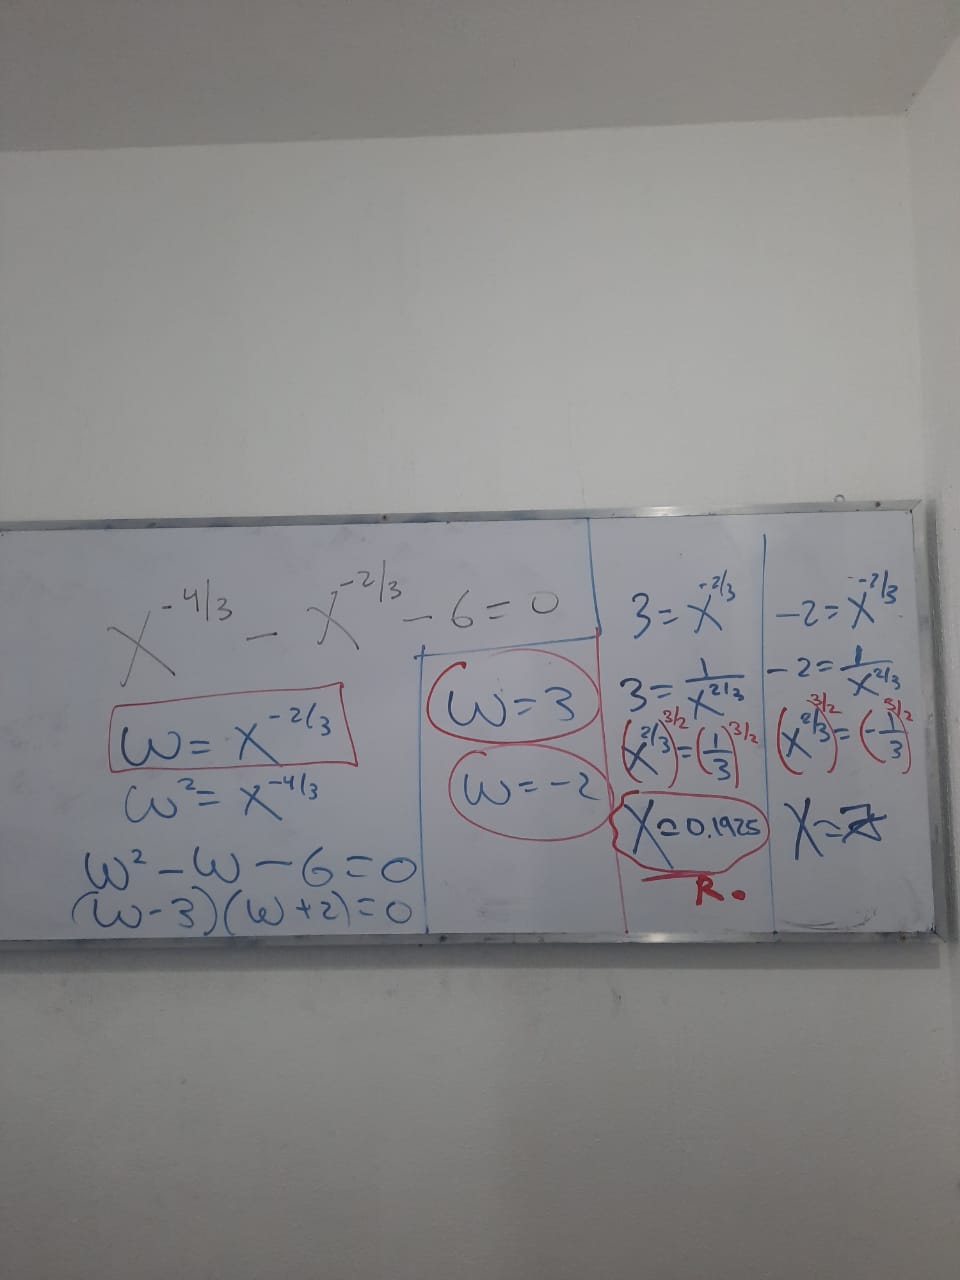 x^{-4/3} - x^{-2/3} - 6 = 0
w = x^{-2/3}
w² = x^{-4/3}
w² - w - 6 = 0
(w-3)(w+2) = 0
w = 3
w = -2
3 = x^{-2/3}
3 = 1/x^{2/3}
(x^{2/3})^{3/2} = (1/3)^{3/2}
x = 0.1925
R.
-2 = x^{-2/3}
-2 = 1/x^{2/3}
(x^{2/3})^{3/2} = (-1/3)^{3/2}
x =